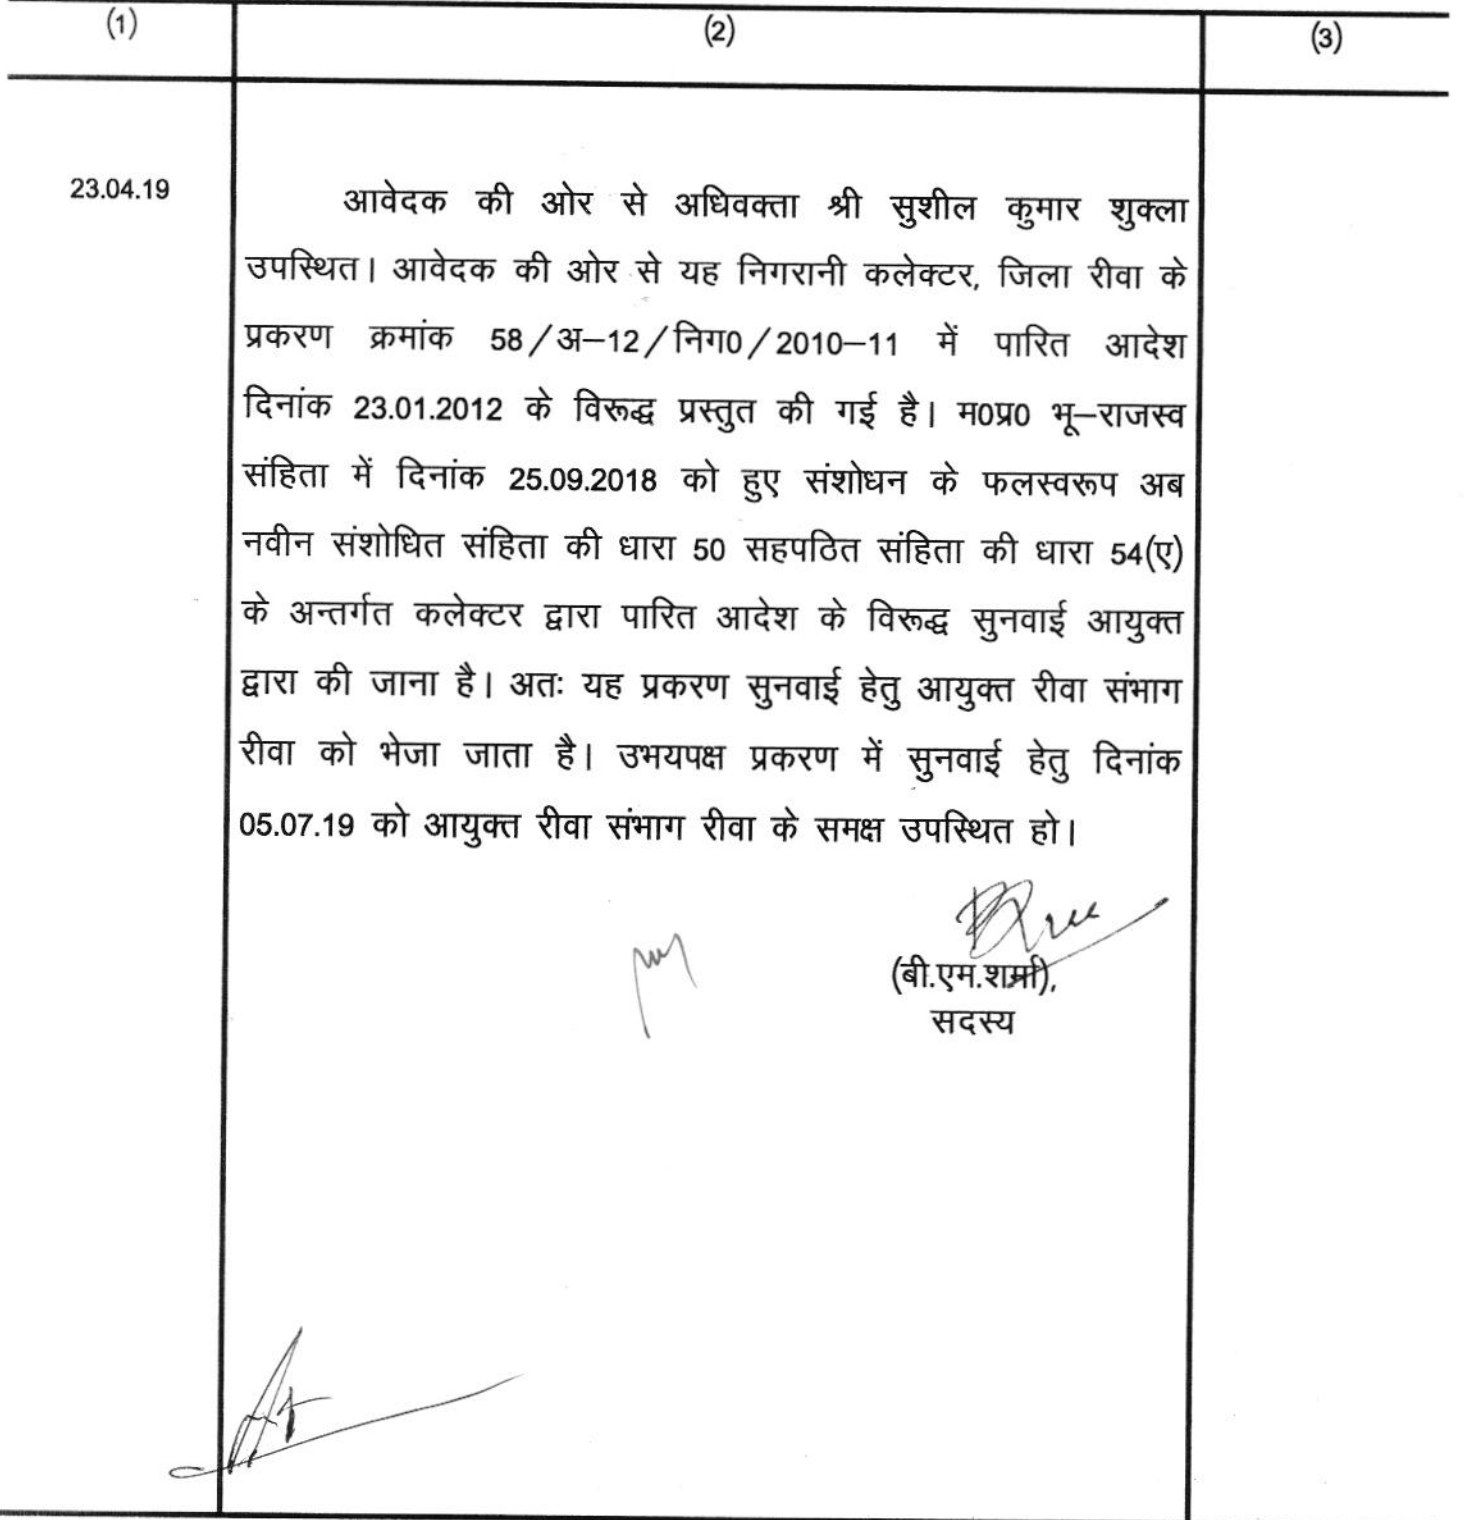 (1) (2) (3)
23.04.19 आवेदक की ओर से अधिवक्ता श्री सुशील कुमार शुक्ला
उपस्थित। आवेदक की ओर से यह निगरानी कलेक्टर, जिला रीवा के
प्रकरण क्रमांक 58/अ–12/निग0/2010–11 में पारित आदेश
दिनांक 23.01.2012 के विरूद्ध प्रस्तुत की गई है। म0प्र0 भू–राजस्व
संहिता में दिनांक 25.09.2018 को हुए संशोधन के फलस्वरूप अब
नवीन संशोधित संहिता की धारा 50 सहपठित संहिता की धारा 54(ए)
के अन्तर्गत कलेक्टर द्वारा पारित आदेश के विरूद्ध सुनवाई आयुक्त
द्वारा की जाना है। अतः यह प्रकरण सुनवाई हेतु आयुक्त रीवा संभाग
रीवा को भेजा जाता है। उभयपक्ष प्रकरण में सुनवाई हेतु दिनांक
05.07.19 को आयुक्त रीवा संभाग रीवा के समक्ष उपस्थित हो।
(बी.एम.शर्मा),
सदस्य